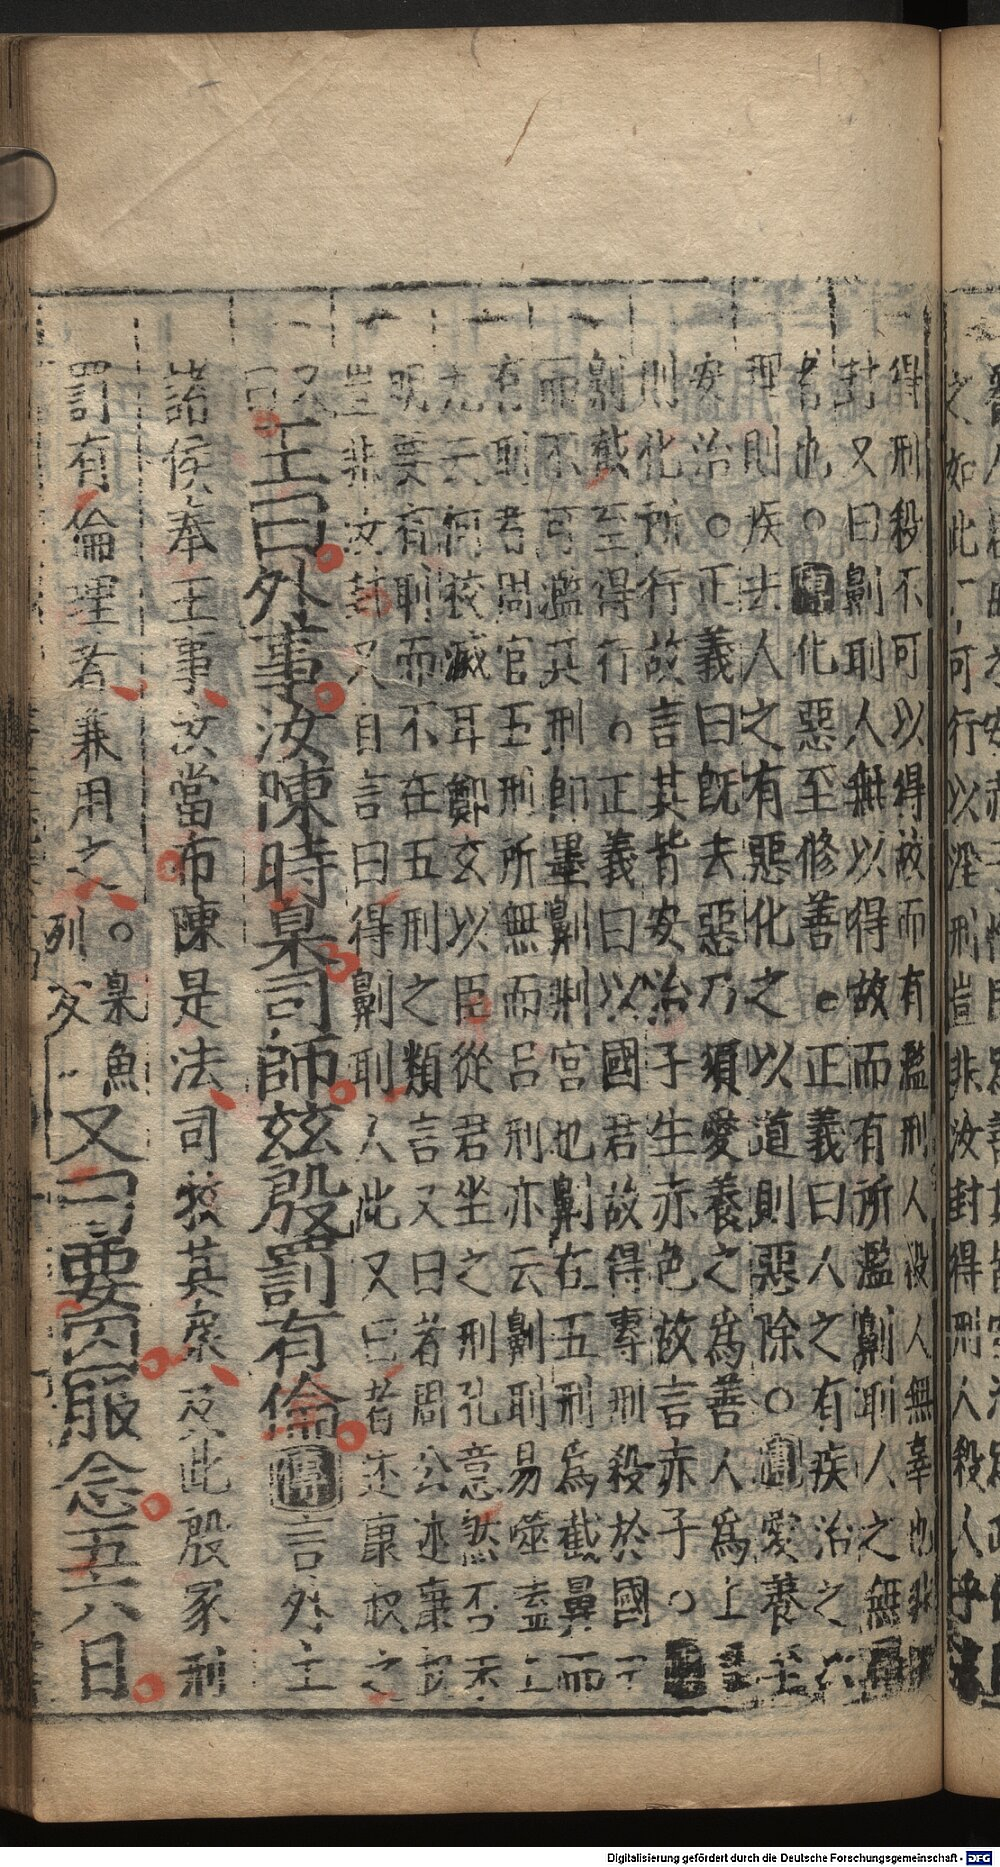 得刑殺不可以得故而有濫刑人殺人無辜也非
封又曰劓刵人無以得故而有所濫劓刵人之無
者也○化惡至修善○正義曰人之有疾治之以
理則疾去人之有惡化之以道則惡除○愛養至
安治○正義曰旣去惡乃須愛養之為善人為上
則化所行故言其皆安治子生赤色故言赤子○
劓截至得行○正義曰以國君故得專刑殺於國
而不可濫其刑即墨劓剕宮也劓在五刑爲截鼻而
有刵者周官五刑所無而呂刑亦云劓刵易噬嗑上
九云何校滅耳鄭玄以臣從君坐之刑孔意然否未
明要有刵而不在五刑之類言又曰者周公述康叔
豈非汝封又自言曰得劓刵人此又曰者述康叔之
又曰王曰外事汝陳時臬司師茲殷罰有倫傳言外土
諸侯奉王事汝當布陳是法司牧其衆及此殷家刑
罰有倫理者兼用之○臬魚列反又曰要囚服念五六日
之如此一可行以淫刑豈非汝封得刑人殺人乎
Digitalisierung gefördert durch die Deutsche Forschungsgemeinschaft - DFG